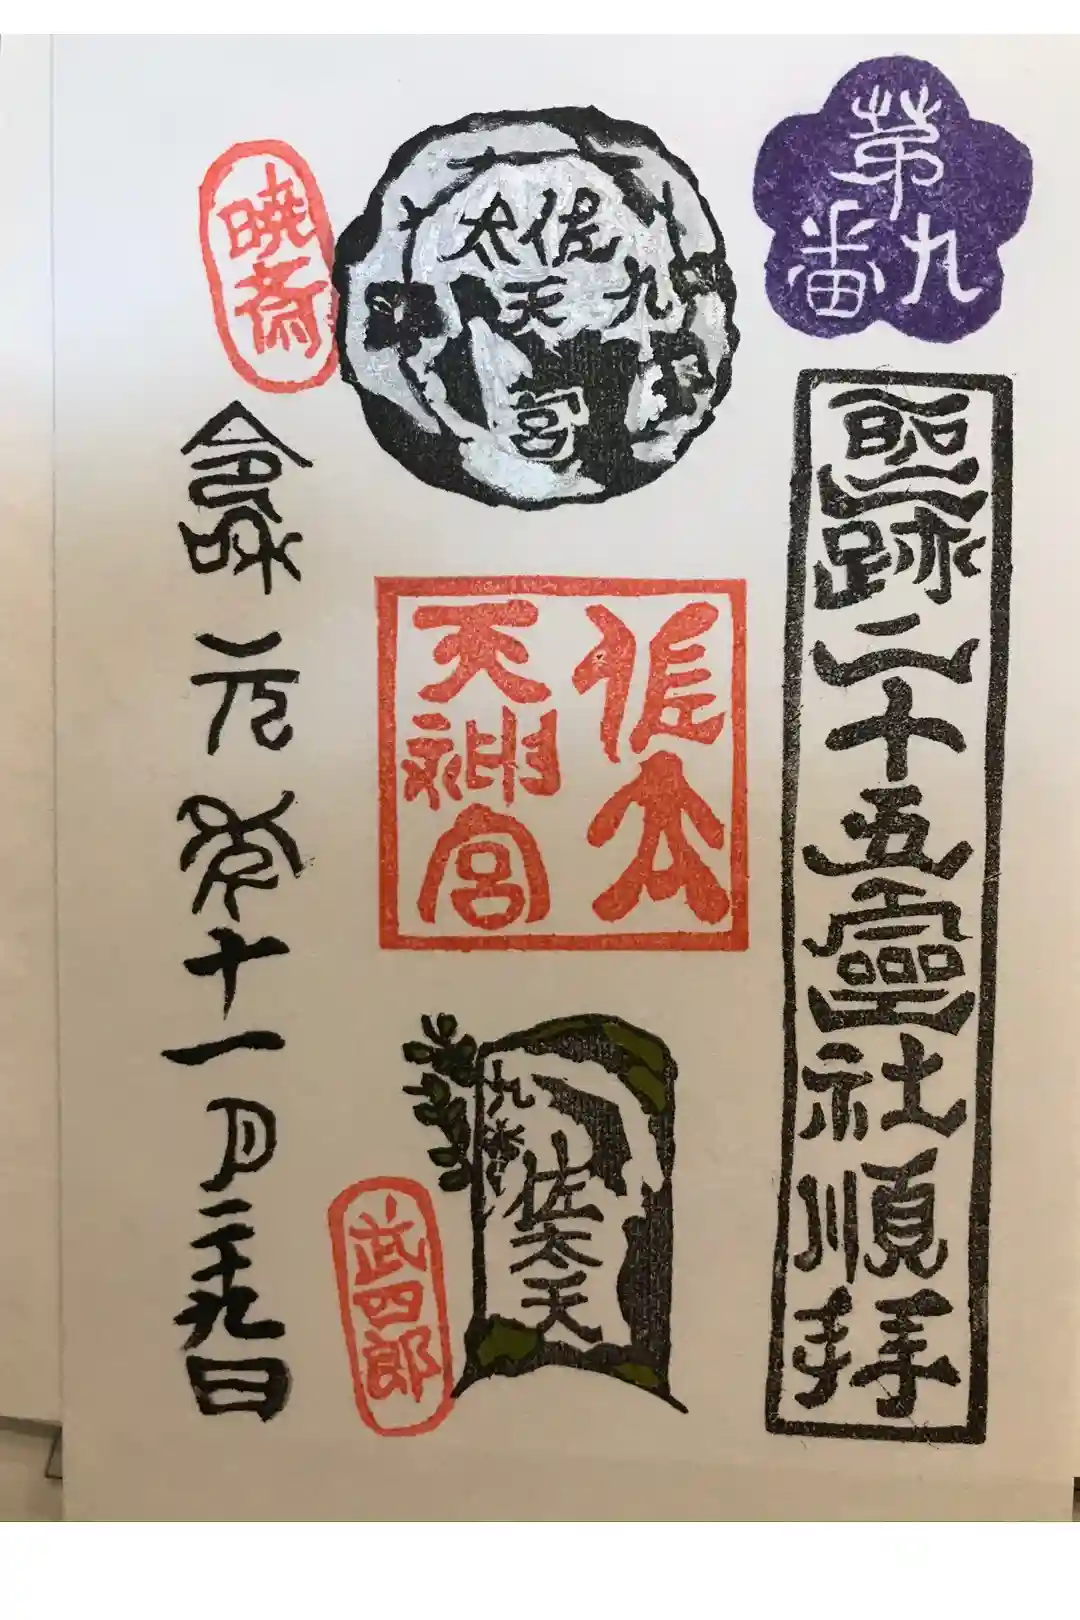 第九番
聖跡二十五靈社順拝
九
佐太
天
宮
佐太
天神宮
九番
佐太天
暁斎
武四郎
令和元年十一月二十九日